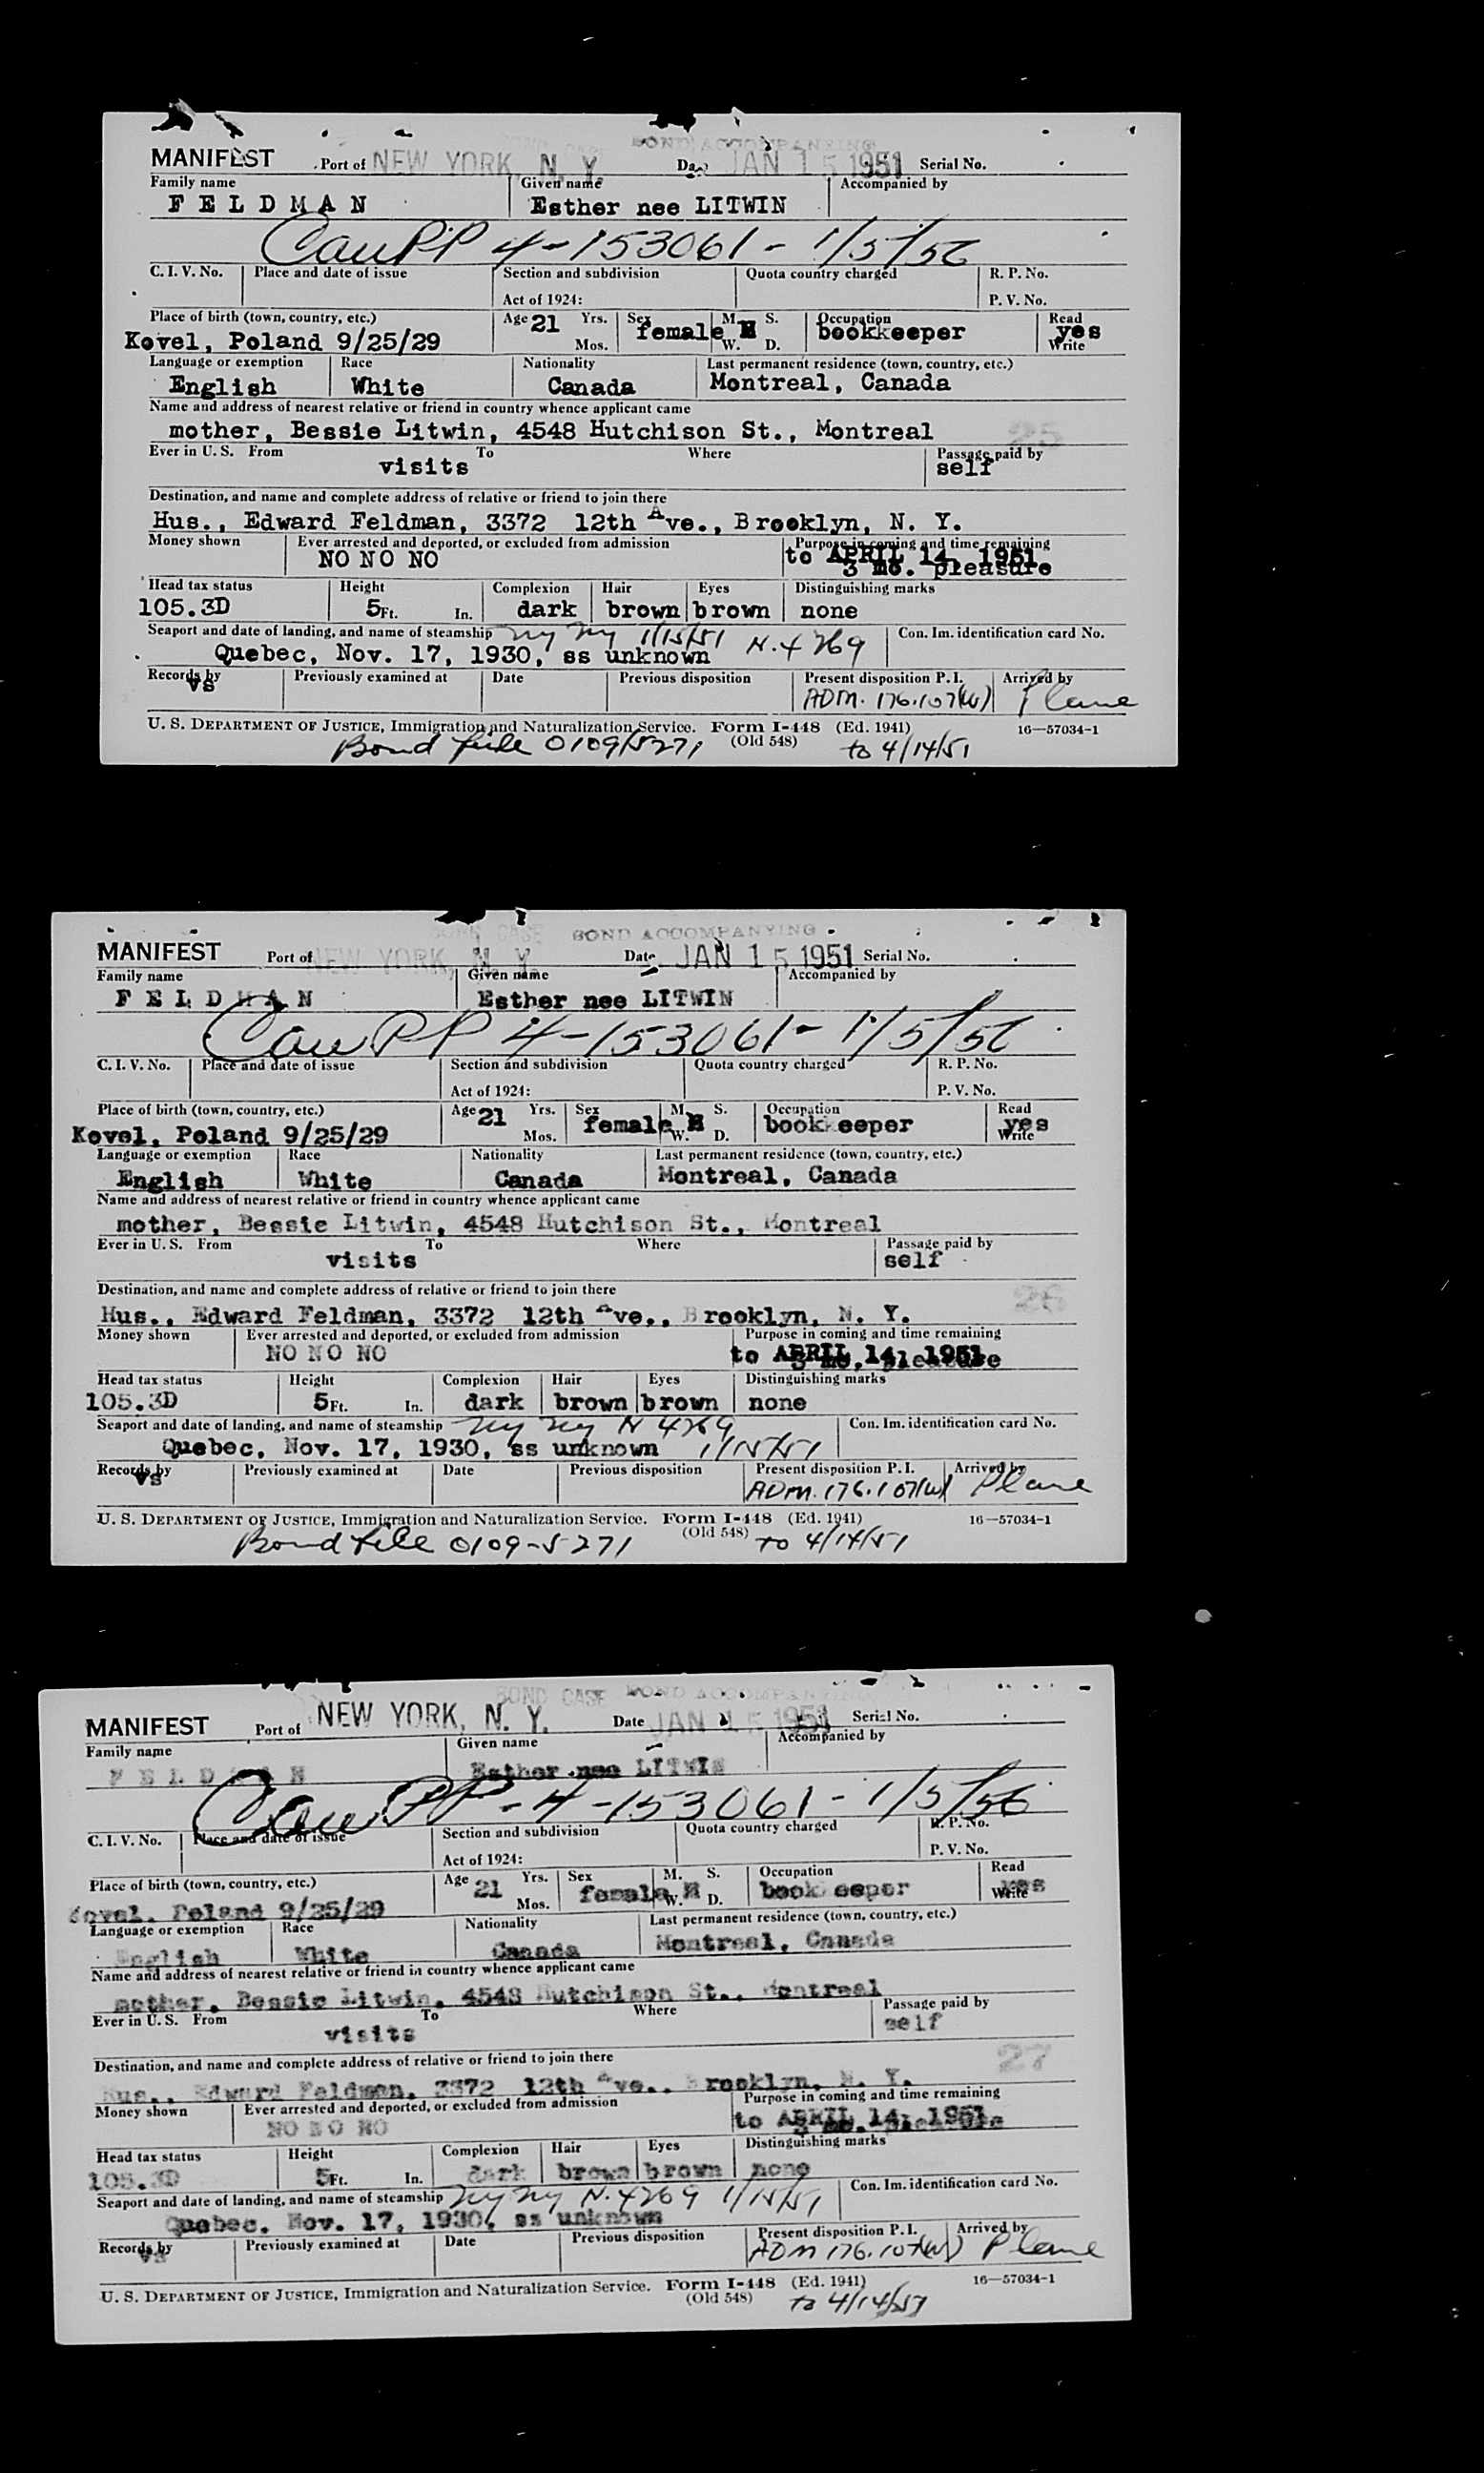 BOND CASE BOND ACCOMPANYING
MANIFEST Port of NEW YORK, N. Y. Date JAN 15 1951 Serial No.
Family name Given name Accompanied by
F E L D M A N Esther nee LITWIN
Can PP 4-153061 - 1/5/56
C. I. V. No. Place and date of issue Section and subdivision Quota country charged R. P. No.
Act of 1924: P. V. No.
Place of birth (town, country, etc.) Age 21 Yrs. Sex M. S. Occupation Read
Kovel, Poland 9/25/29 Mos. female M W. D. bookkeeper yes Write
Language or exemption Race Nationality Last permanent residence (town, country, etc.)
English White Canada Montreal, Canada
Name and address of nearest relative or friend in country whence applicant came
mother, Bessie Litwin, 4548 Hutchison St., Montreal 25
Ever in U. S. From To Where Passage paid by
visits self
Destination, and name and complete address of relative or friend to join there
Hus., Edward Feldman, 3372 12th Ave., Brooklyn, N. Y.
Money shown Ever arrested and deported, or excluded from admission Purpose in coming and time remaining
NO NO NO to APRIL 14, 1951
3 mo. pleasure
Head tax status Height Complexion Hair Eyes Distinguishing marks
105.3D 5 Ft. In. dark brown brown none
Seaport and date of landing, and name of steamship NY NY 1/15/51 N.4269 Con. Im. identification card No.
Quebec, Nov. 17, 1930, ss unknown
Records by Previously examined at Date Previous disposition Present disposition P. I. Arrived by
vs ADM. 176.107(W) Plane
U. S. DEPARTMENT OF JUSTICE, Immigration and Naturalization Service. Form I-448 (Ed. 1941) 16—57034-1
(Old 548)
Bond file 0109/5271 to 4/14/51
BOND CASE BOND ACCOMPANYING
MANIFEST Port of NEW YORK, N. Y. Date JAN 15 1951 Serial No.
Family name Given name Accompanied by
F E L D M A N Esther nee LITWIN
Can PP 4-153061 - 1/5/56
C. I. V. No. Place and date of issue Section and subdivision Quota country charged R. P. No.
Act of 1924: P. V. No.
Place of birth (town, country, etc.) Age 21 Yrs. Sex M. S. Occupation Read
Kovel, Poland 9/25/29 Mos. female M W. D. bookkeeper yes Write
Language or exemption Race Nationality Last permanent residence (town, country, etc.)
English White Canada Montreal, Canada
Name and address of nearest relative or friend in country whence applicant came
mother, Bessie Litwin, 4548 Hutchison St., Montreal
Ever in U. S. From To Where Passage paid by
visits self
Destination, and name and complete address of relative or friend to join there 26
Hus., Edward Feldman, 3372 12th Ave., Brooklyn, N. Y.
Money shown Ever arrested and deported, or excluded from admission Purpose in coming and time remaining
NO NO NO to APRIL 14, 1951
3 mo. pleasure
Head tax status Height Complexion Hair Eyes Distinguishing marks
105.3D 5 Ft. In. dark brown brown none
Seaport and date of landing, and name of steamship NY NY N 4269 Con. Im. identification card No.
Quebec, Nov. 17, 1930, ss unknown 1/15/51
Records by Previously examined at Date Previous disposition Present disposition P. I. Arrived by
vs ADM. 176.107(W) Plane
U. S. DEPARTMENT OF JUSTICE, Immigration and Naturalization Service. Form I-448 (Ed. 1941) 16—57034-1
(Old 548)
Bond file 0109-5271 to 4/14/51
BOND CASE BOND ACCOMPANYING
MANIFEST Port of NEW YORK, N. Y. Date JAN 15 1951 Serial No.
Family name Given name Accompanied by
F E L D M A N Esther nee LITWIN
Can PP - 4-153061 - 1/5/56
C. I. V. No. Place and date of issue Section and subdivision Quota country charged R. P. No.
Act of 1924: P. V. No.
Place of birth (town, country, etc.) Age 21 Yrs. Sex M. S. Occupation Read
Kovel, Poland 9/25/29 Mos. female M W. D. bookkeeper yes Write
Language or exemption Race Nationality Last permanent residence (town, country, etc.)
English White Canada Montreal, Canada
Name and address of nearest relative or friend in country whence applicant came
mother, Bessie Litwin, 4548 Hutchison St., Montreal
Ever in U. S. From To Where Passage paid by
visits self
Destination, and name and complete address of relative or friend to join there 27
Hus., Edward Feldman, 3372 12th Ave., Brooklyn, N. Y.
Money shown Ever arrested and deported, or excluded from admission Purpose in coming and time remaining
NO NO NO to APRIL 14, 1951
3 mo. pleasure
Head tax status Height Complexion Hair Eyes Distinguishing marks
105.3D 5 Ft. In. dark brown brown none
Seaport and date of landing, and name of steamship NY NY N.4269 1/15/51 Con. Im. identification card No.
Quebec, Nov. 17, 1930, ss unknown
Records by Previously examined at Date Previous disposition Present disposition P. I. Arrived by
vs ADM 176.107(W) Plane
U. S. DEPARTMENT OF JUSTICE, Immigration and Naturalization Service. Form I-448 (Ed. 1941) 16—57034-1
(Old 548) to 4/14/51